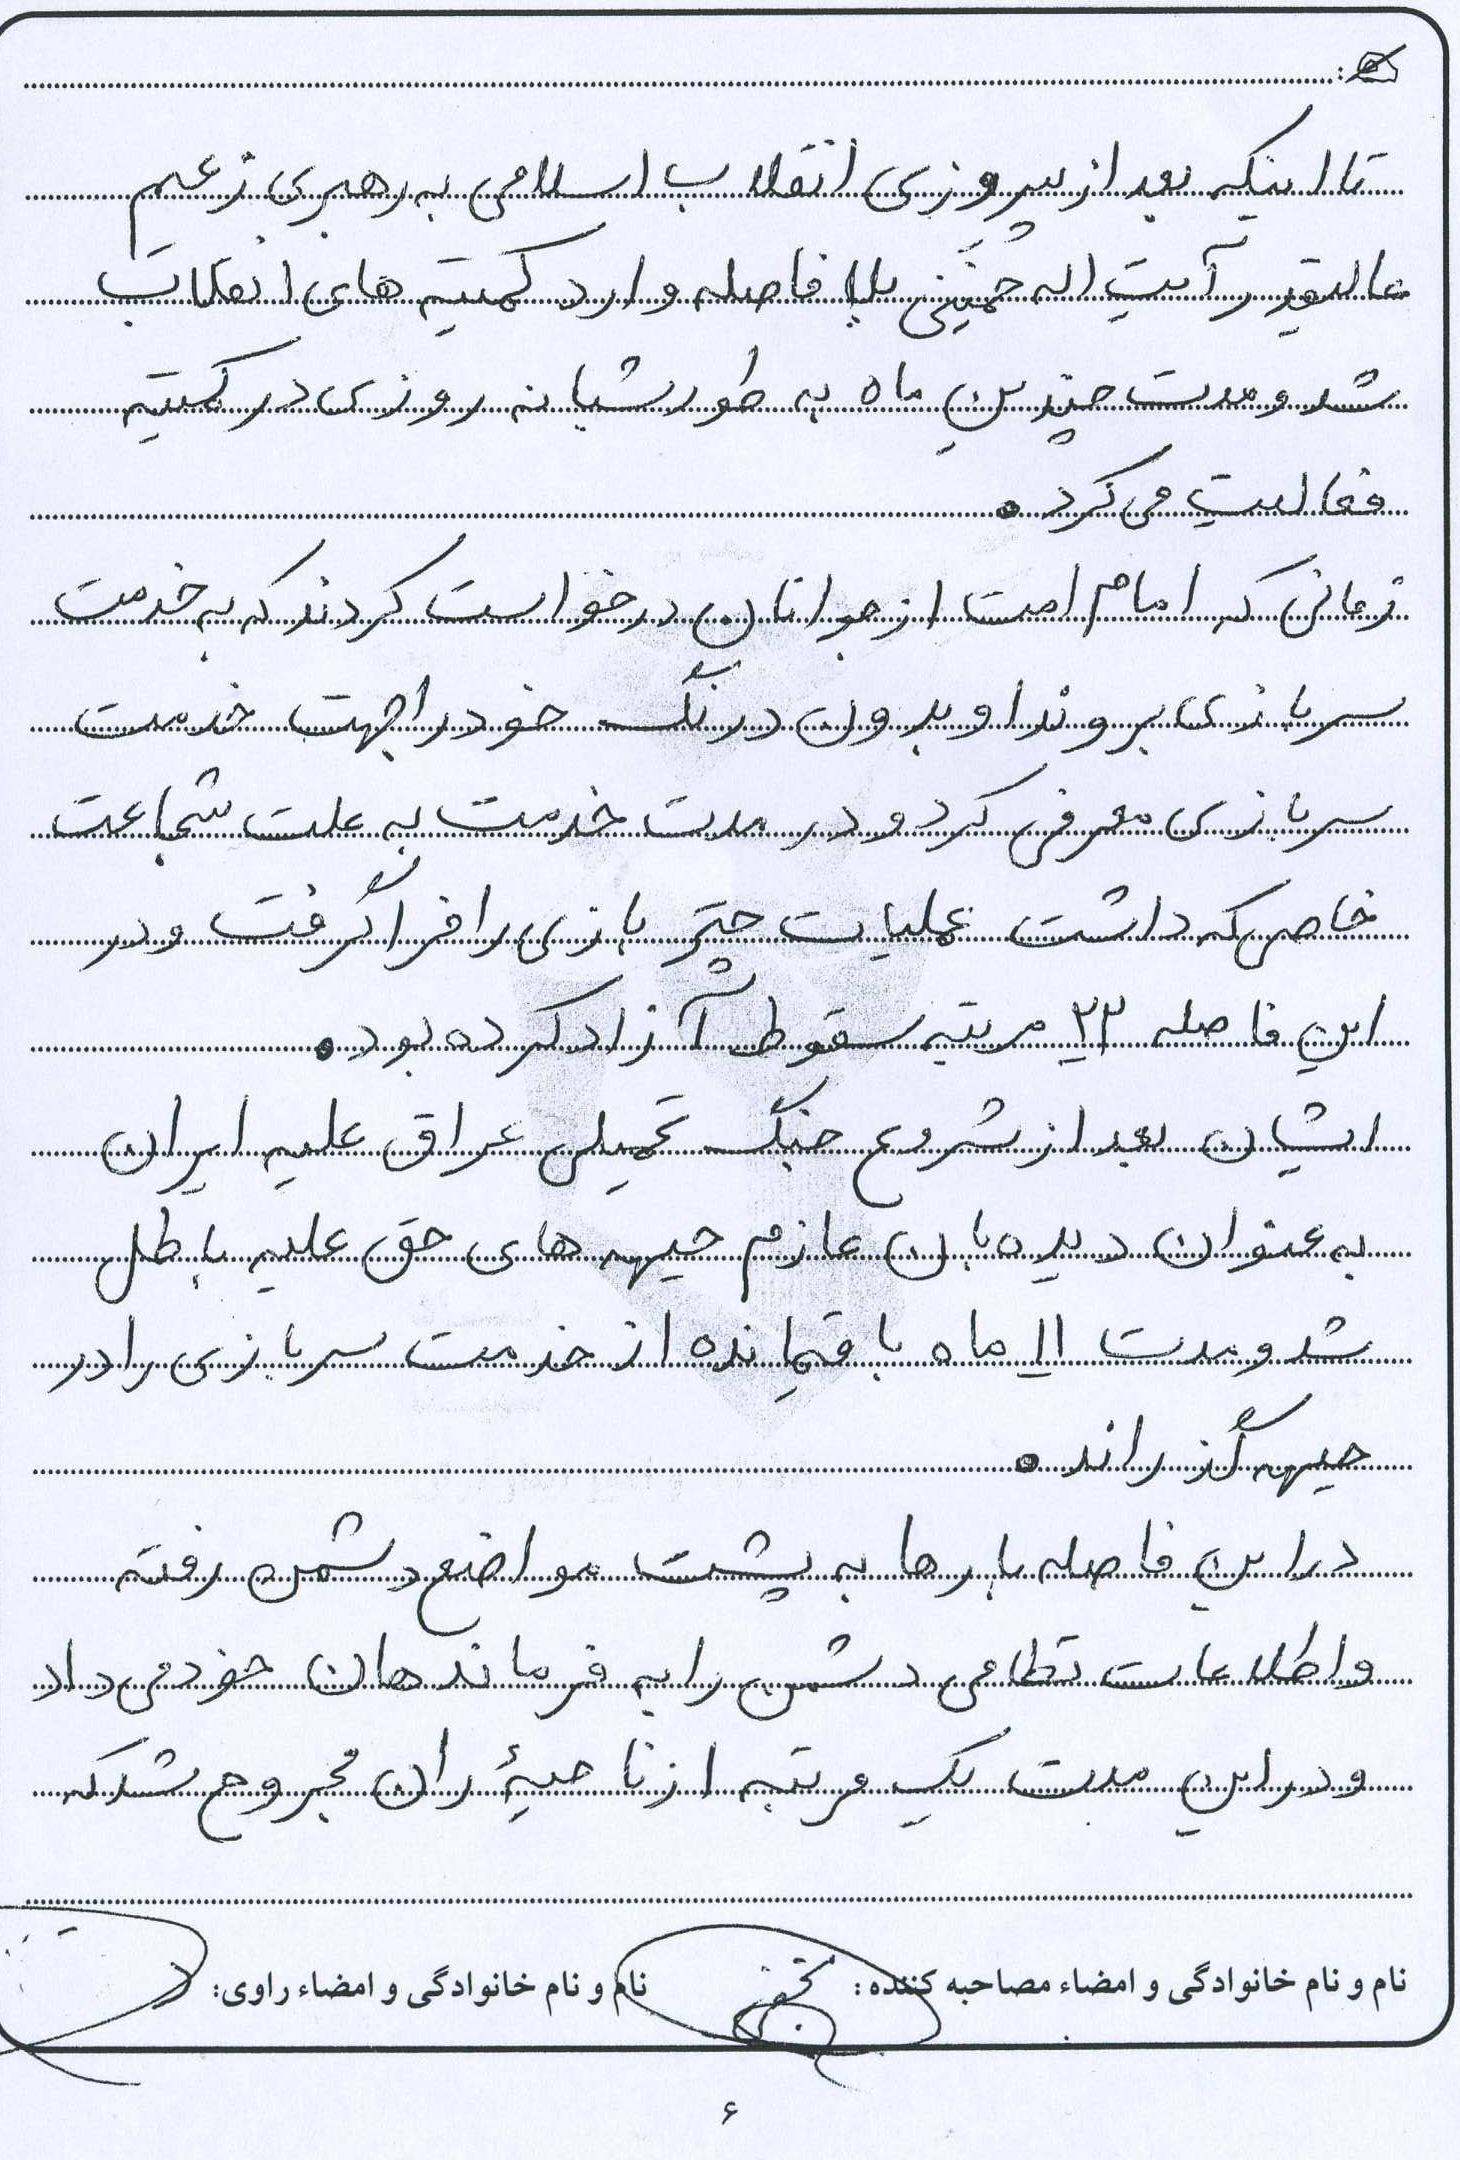 تا اینکه بعد از پیروزی انقلاب اسلامی به رهبری زعیم
عالیقدر آیت اله خمینی بلا فاصله وارد کمیته های انقلاب
شد و مدت چندین ماه به طور شبانه روزی در کمیته
فعالیت می کرد.
زمانی که امام امت از جوانان درخواست کردند که به خدمت
سربازی بروند او بدون درنگ خود را جهت خدمت
سربازی معرفی کرد و در مدت خدمت به علت شجاعت
خاصی که داشت عملیات چتر بازی را فرا گرفت و در
این فاصله ۲۳ مرتبه سقوط آزاد کرده بود.
ایشان بعد از شروع جنگ تحمیلی عراق علیه ایران
به عنوان دیده بان عازم جبهه های حق علیه باطل
شد و مدت ۱۱ ماه باقیمانده از خدمت سربازی را در
جبهه گذراند.
در این فاصله بارها به پشت مواضع دشمن رفته
و اطلاعات نظامی دشمن را به فرماندهان خود می داد
و در این مدت یک مرتبه از ناحیۀ ران مجروح شد که
نام و نام خانوادگی و امضاء مصاحبه کننده: نام و نام خانوادگی و امضاء راوی:
۶